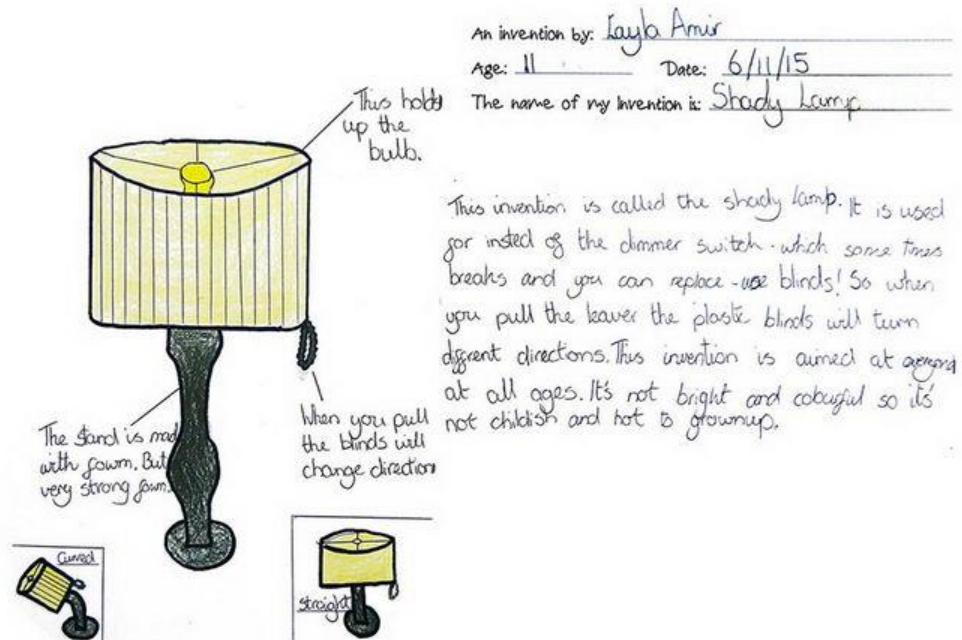 An invention by: Layla Amir
Age: 11 Date: 6/11/15
The name of my Invention is: Shady Lamp
This holds
up the
bulb.
This invention is called the shady lamp. It is used
for insted of the dimmer switch - which some times
breaks and you can replace - use blinds! So when
you pull the leaver the plastic blinds will tuwn
diffrent directions. This invention is aimed at
at all ages. It's not bright and colourful so it's
not childish and not to grownup.
When you pull
the blinds will
change direction
The stand is mad
with fowm. But
very strong fowm.
Curved
straight